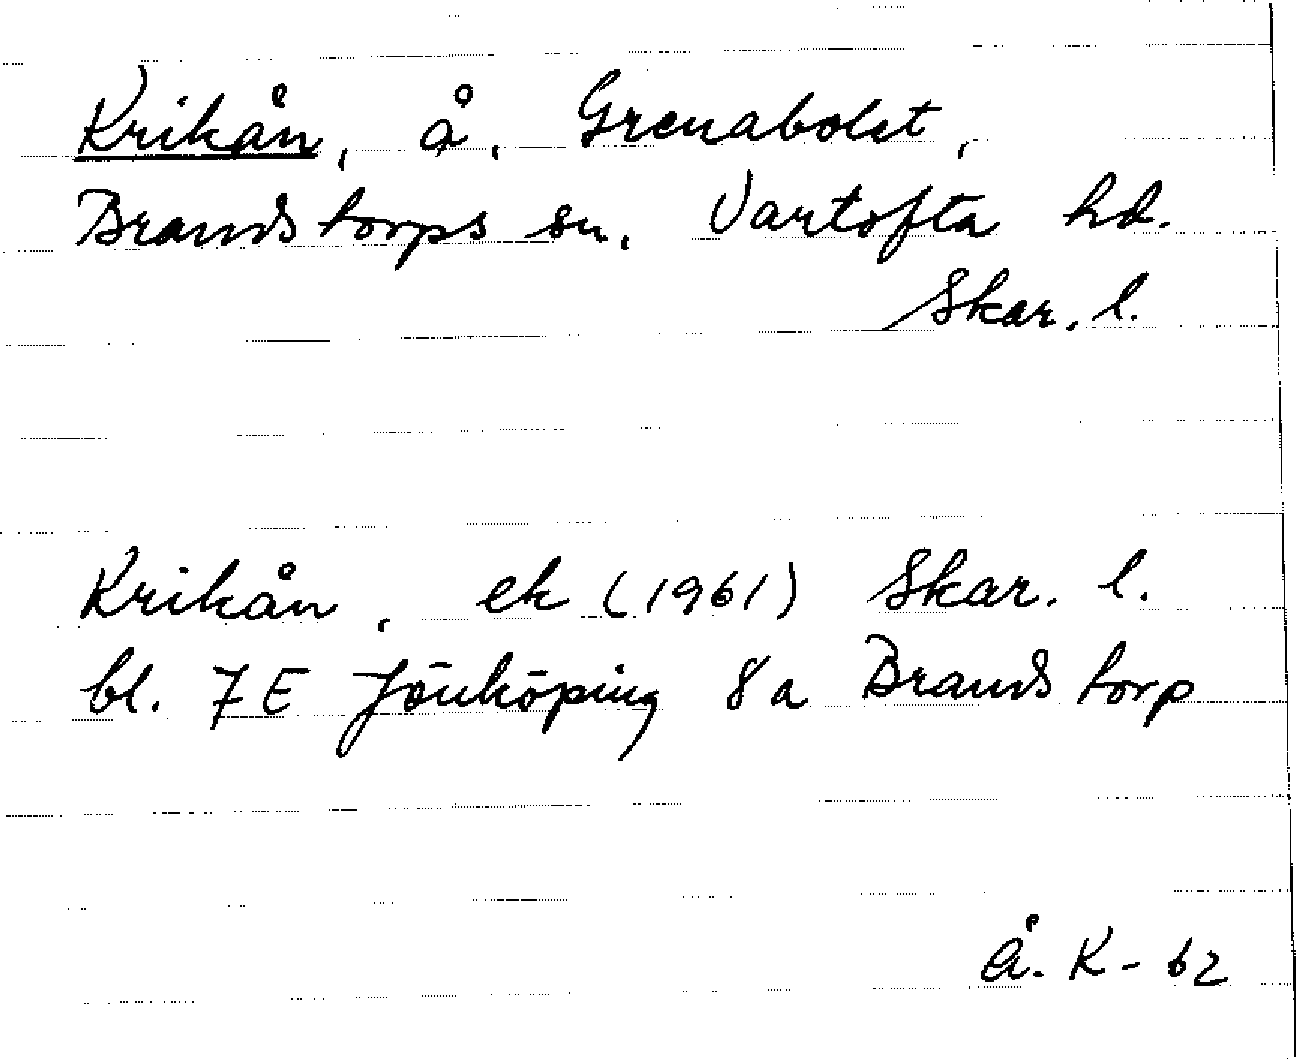 Krikån, å, Grenabolet,
Brandstorps sn, Vartofta hd.
Skar. l.
Krikån, ek (1961) Skar. l.
bl. 7E Jönköping 8a Brandstorp
Å. K - 62